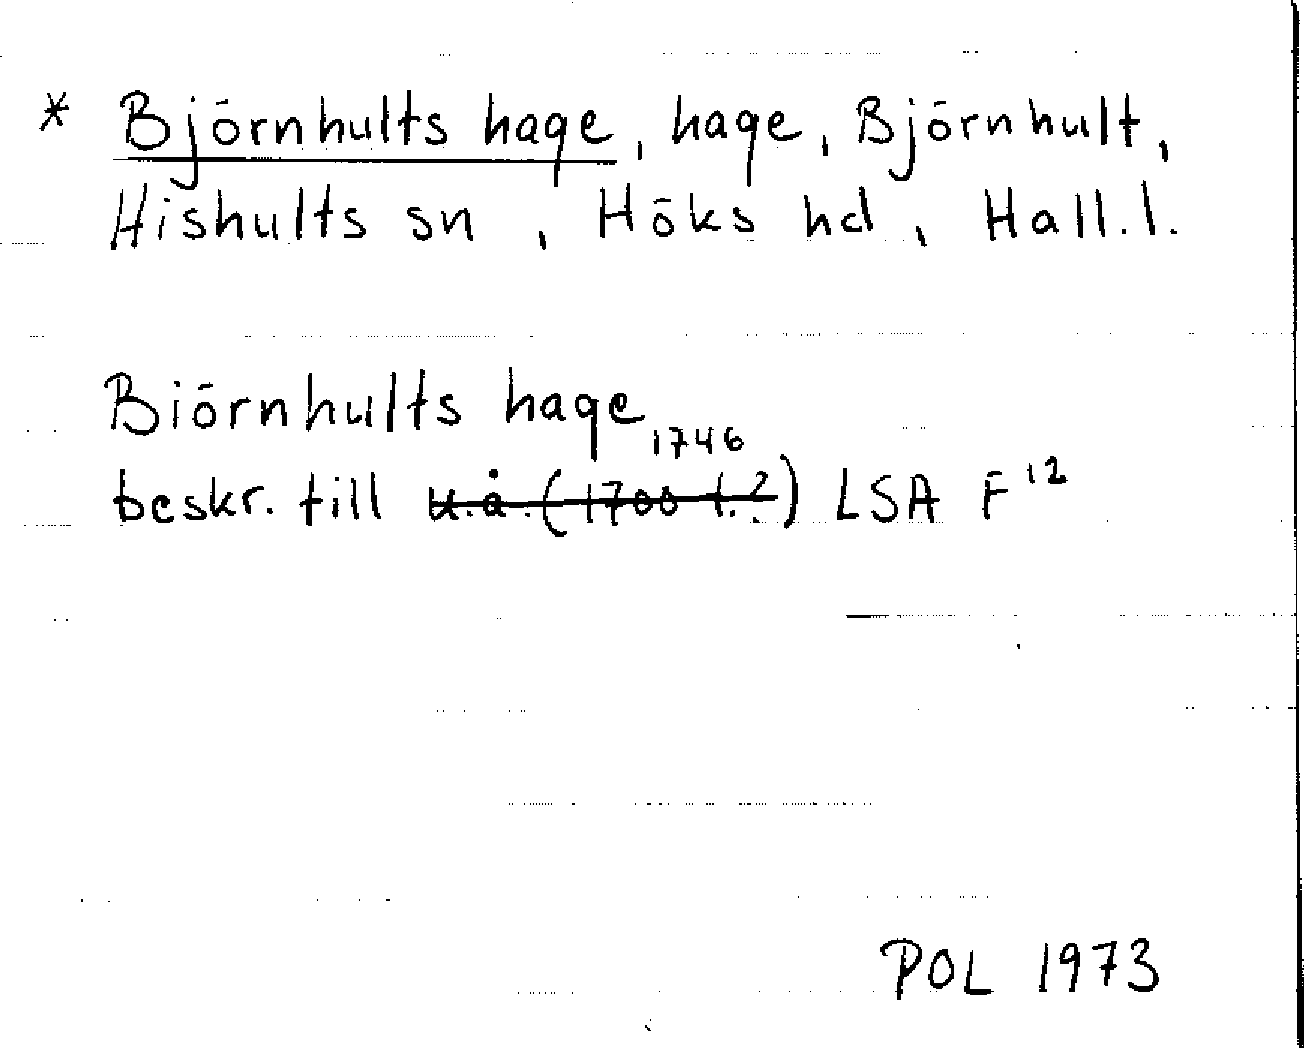 * Björnhults hage, hage, Björnhult,
Hishults sn, Höks hd, Hall.l.
Biörnhults hage
1746
beskr. till u.å. (1700 t.?) LSA F 12
POL 1973